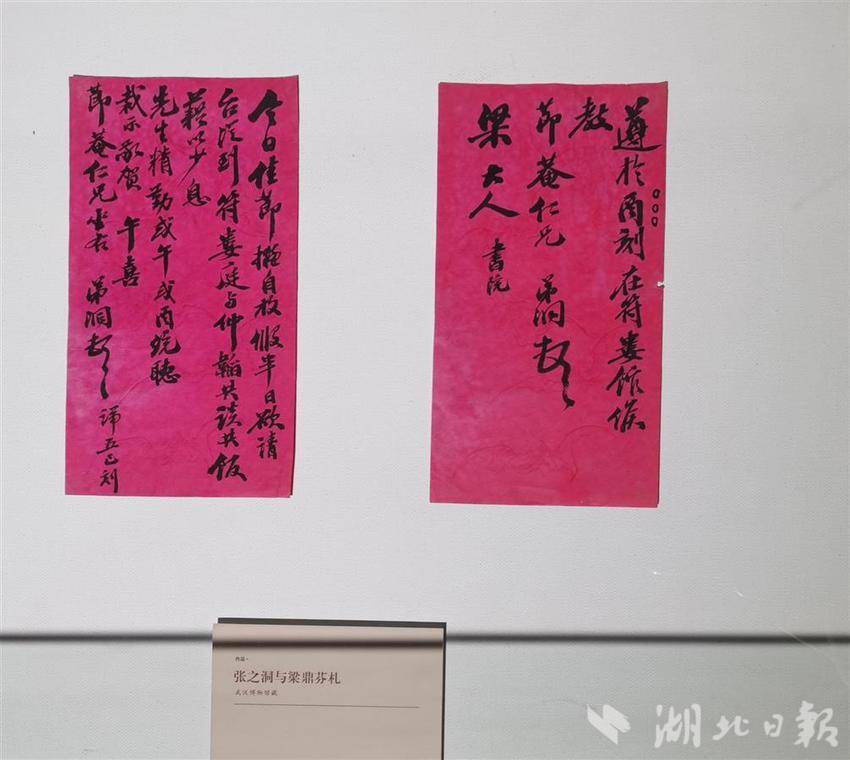 今日佳節擬自放假半日欲請
台從到符婁庭与仲韜共談共飯
藉以少息
先生精勤或午或丙統聽
裁示敬賀 午喜
節菴仁兄坐右 弟洞 五巳刻
遵於丙刻在符婁館候
教
節菴仁兄 弟洞
梁大人 書院
作品·
张之洞与梁鼎芬札
武汉博物馆藏
湖北日报